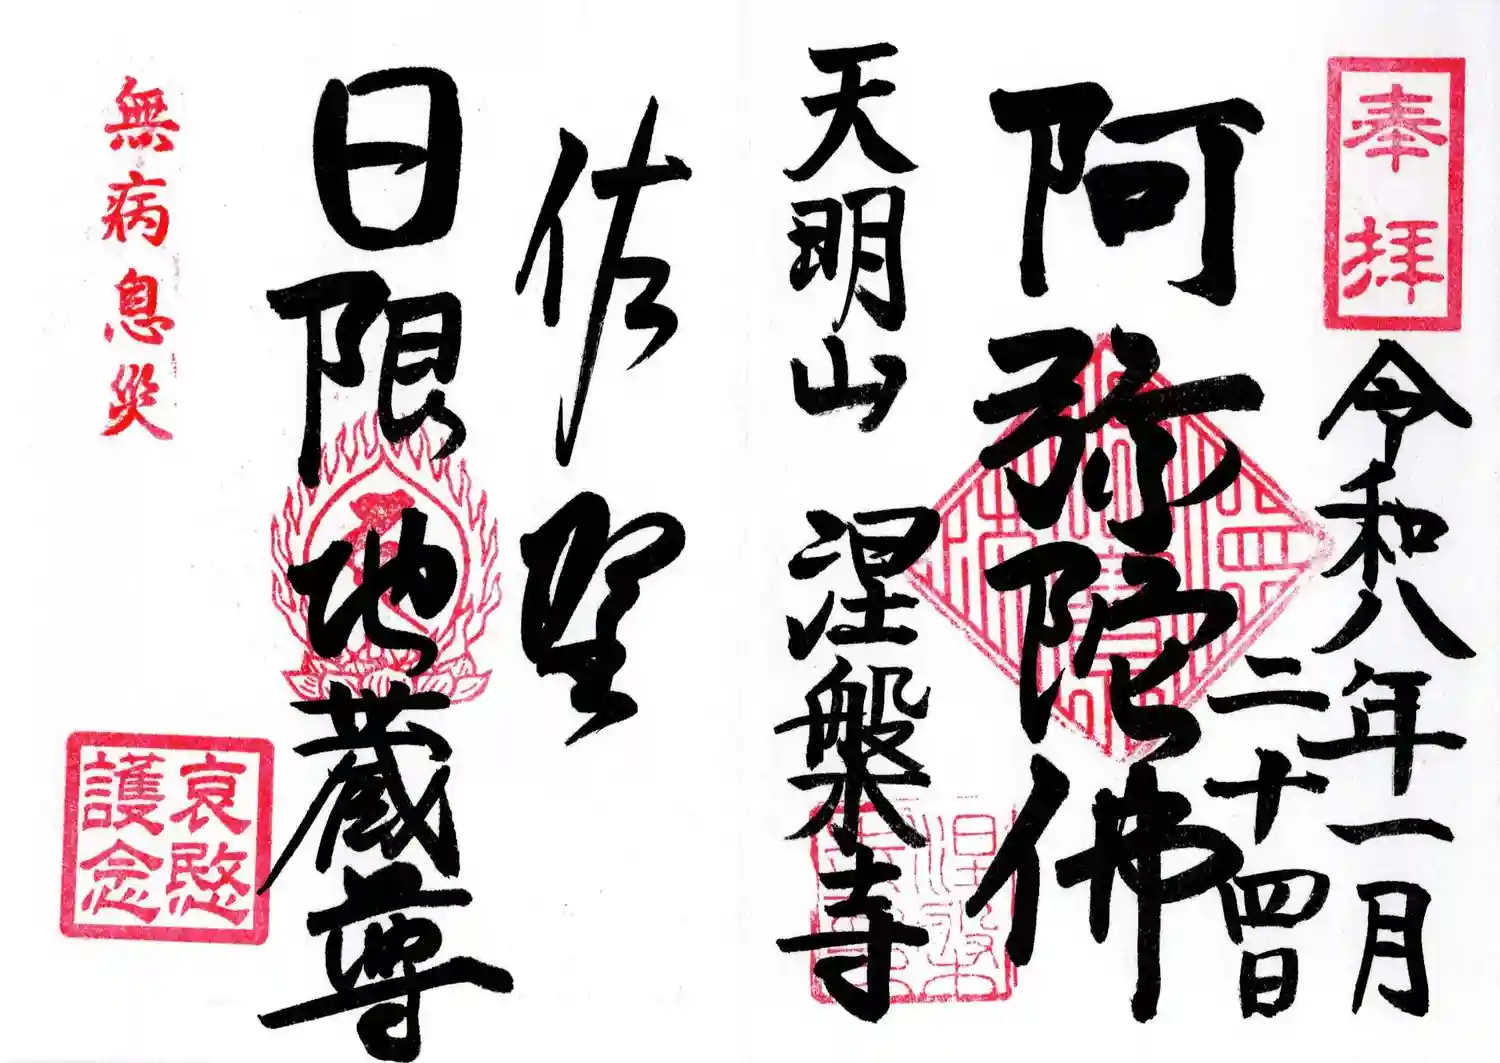 奉拝
令和八年一月
二十四日
阿弥陀佛
天明山 涅槃寺
佐野
日限地蔵尊
無病息災
哀愍
護念